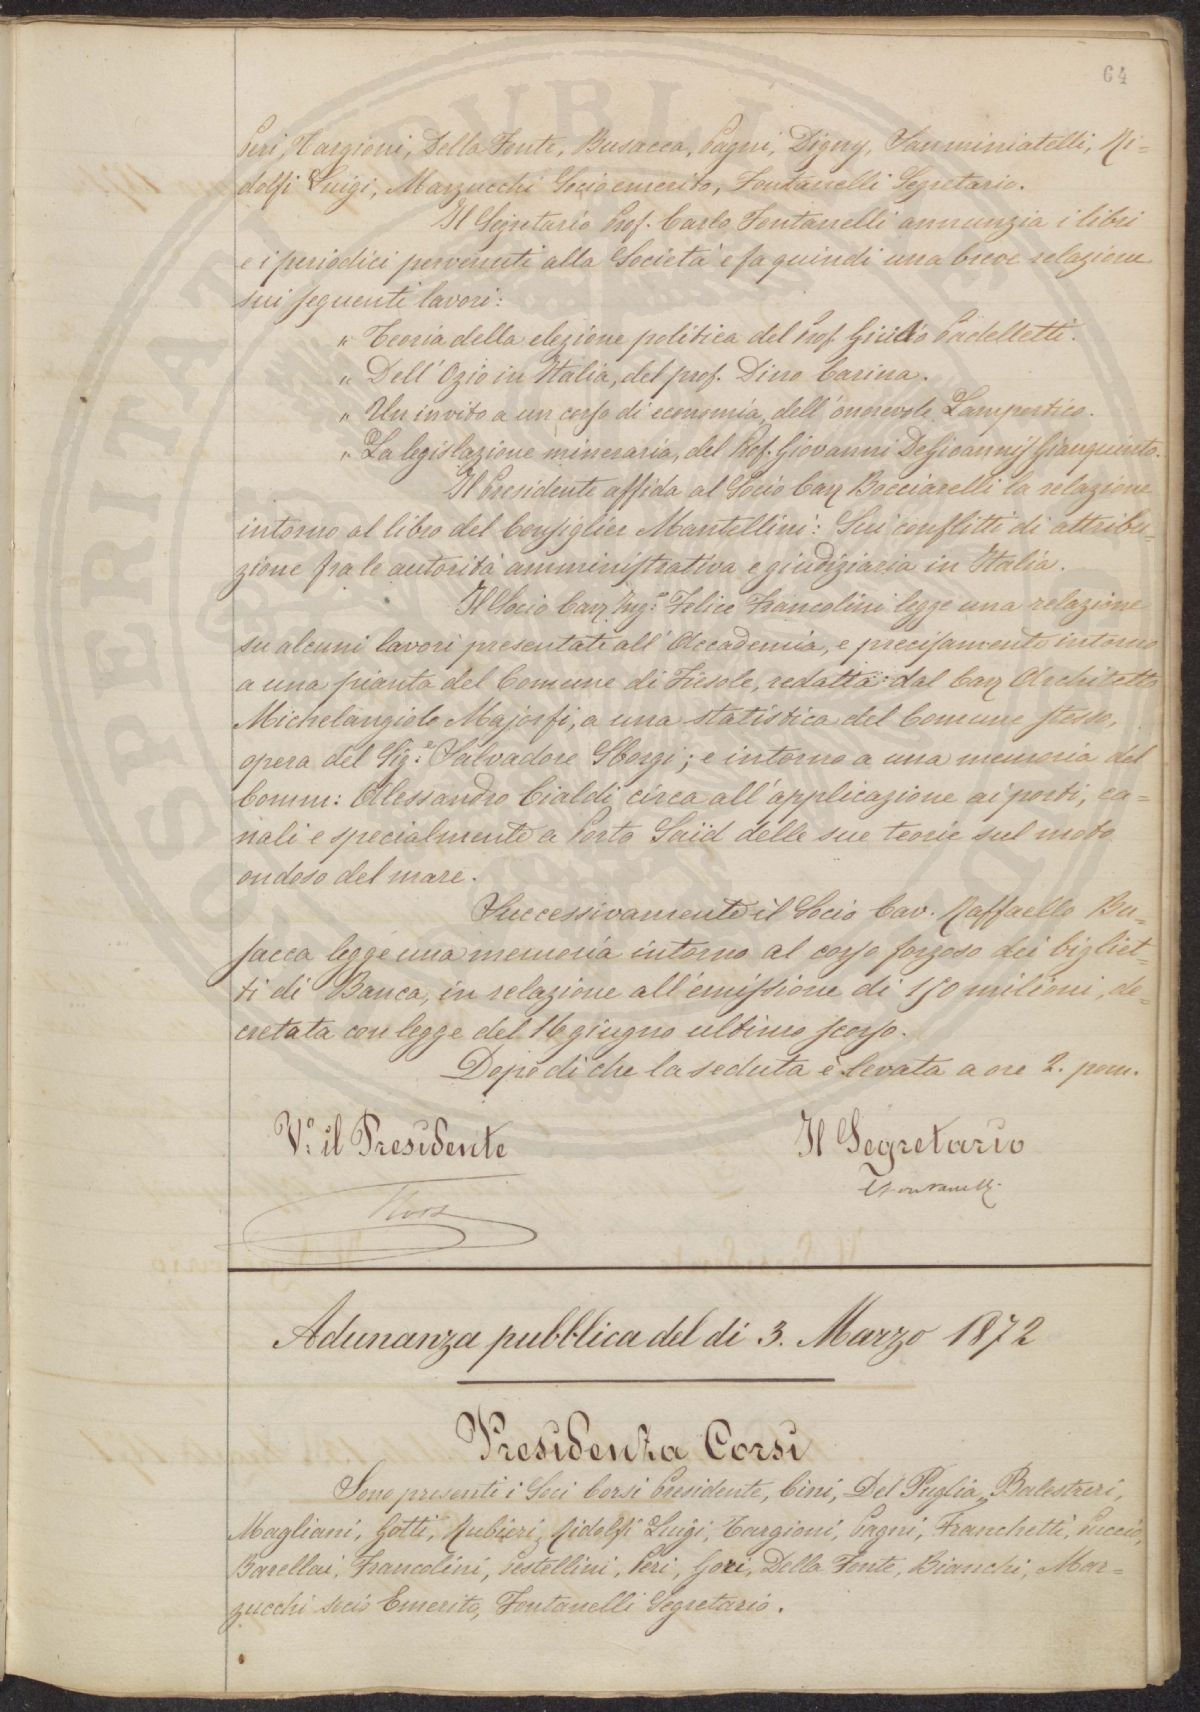 64
Peri, Targioni, Della Fonte, Busacca, Pagni, Digny, Samminiatelli, Ri=
dolfi Luigi, Marzucchi Socio emerito, Fontanelli Segretario.
Il Segretario Prof. Carlo Fontanelli annunzia i libri
e i periodici pervenuti alla Società e fa quindi una breve relazione
sui seguenti lavori:
" Teoria della elezione politica del Prof. Guido Padelletti.
" Dell'Ozio in Italia, del prof. Dino Carina.
" Un invito a un corso di economia, dell'onorevole Lampertico.
" La legislazione mineraria, del Prof. Giovanni DeGioannis Gianquinto.
Il Presidente affida al Socio Cav Bocciarelli la relazione
intorno al libro del Consiglier Mantellini: Sui conflitti di attribu=
zione fra le autorità amministrativa e giudiziaria in Italia.
Il Socio Cav Ing.e Felice Francolini legge una relazione
su alcuni lavori presentati all'Accademia, e precisamente intorno
a una pianta del Comune di Fiesole, redatta dal Cav Architetto
Michelangiolo Majorfi, a una statistica del Comune stesso,
opera del Sig.e Salvadore Sborgi; e intorno a una memoria del
Comm: Alessandro Cialdi circa all'applicazione ai porti, ca=
nali e specialmente a Porto Saïd delle sue teorie sul moto
ondoso del mare.
Successivamente il Socio Cav. Raffaello Bu=
sacca legge una memoria intorno al corso forzoso dei bigliet=
ti di Banca, in relazione all'emissione di 150 milioni, de=
cretata con legge del 16 giugno ultimo scorso.
Dopo di che la seduta è levata a ore 2. pom.
V.o il Presidente Il Segretario
Corsi CFontanelli
Adunanza pubblica del di 3. Marzo 1872
Presidenza Corsi
Sono presenti i Soci Corsi Presidente, Cini, Del Puglia, Balestreri,
Magliani, Gotti, Rubieri, Ridolfi Luigi, Targioni, Pagni, Franchetti, Puccio,
Barellai, Francolini, Pestellini, Peri, Gori, Della Fonte, Bianchi, Mar=
zucchi socio Emerito, Fontanelli Segretario.